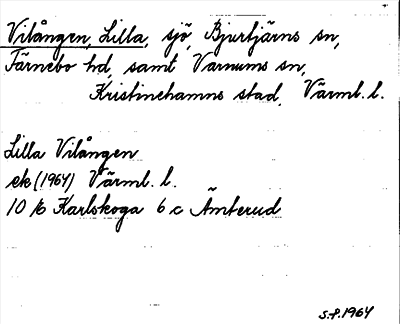 Vilången, Lilla, sjö, Bjurtjärns sn,
Färnebo hd, samt Varnums sn,
Kristinehamns stad, Värml. l.
Lilla Vilången
ek (1964) Värml. l.
10 16 Karlskoga 6 c Ämterud
S.P. 1964